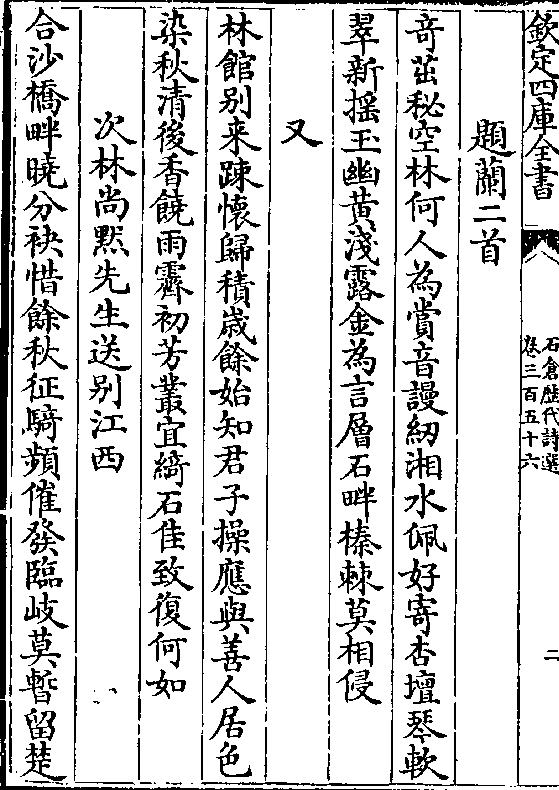 欽定四庫全書
石倉歴代詩選
卷三百五十六
二
題蘭二首
奇茁秘空林何人為賞音謾紉湘水佩好寄杏壇琴軟
翠新揺玉幽黄淺露金為言層石畔榛棘莫相侵
又
林館别来踈懷歸積歳餘始知君子操應與善人居色
染秋清後香饒雨霽初芳叢宜綺石佳致復何如
次林尚黙先生送别江西
合沙橋畔曉分袂惜餘秋征騎頻催發臨岐莫暫留楚